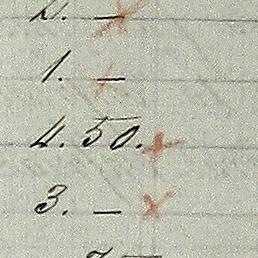 2. —
1. —
4. 50.
3. —